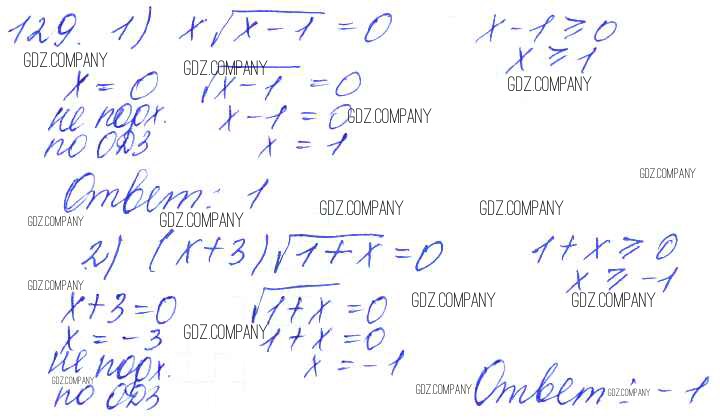 129. 1) x√(x-1) = 0 x-1 ⩾ 0
x ⩾ 1
GDZ.COMPANY GDZ.COMPANY GDZ.COMPANY
x = 0 √(x-1) = 0
не подх. x-1 = 0 GDZ.COMPANY
по ОДЗ x = 1
GDZ.COMPANY
Ответ: 1
GDZ.COMPANY GDZ.COMPANY GDZ.COMPANY GDZ.COMPANY
2) (x+3)√(1+x) = 0 1+x ⩾ 0
x ⩾ -1
GDZ.COMPANY GDZ.COMPANY GDZ.COMPANY
x+3=0 √(1+x) = 0
x = -3 GDZ.COMPANY 1+x=0
не подх. x = -1
GDZ.COMPANY GDZ.COMPANY GDZ.COMPANY
по ОДЗ Ответ: -1